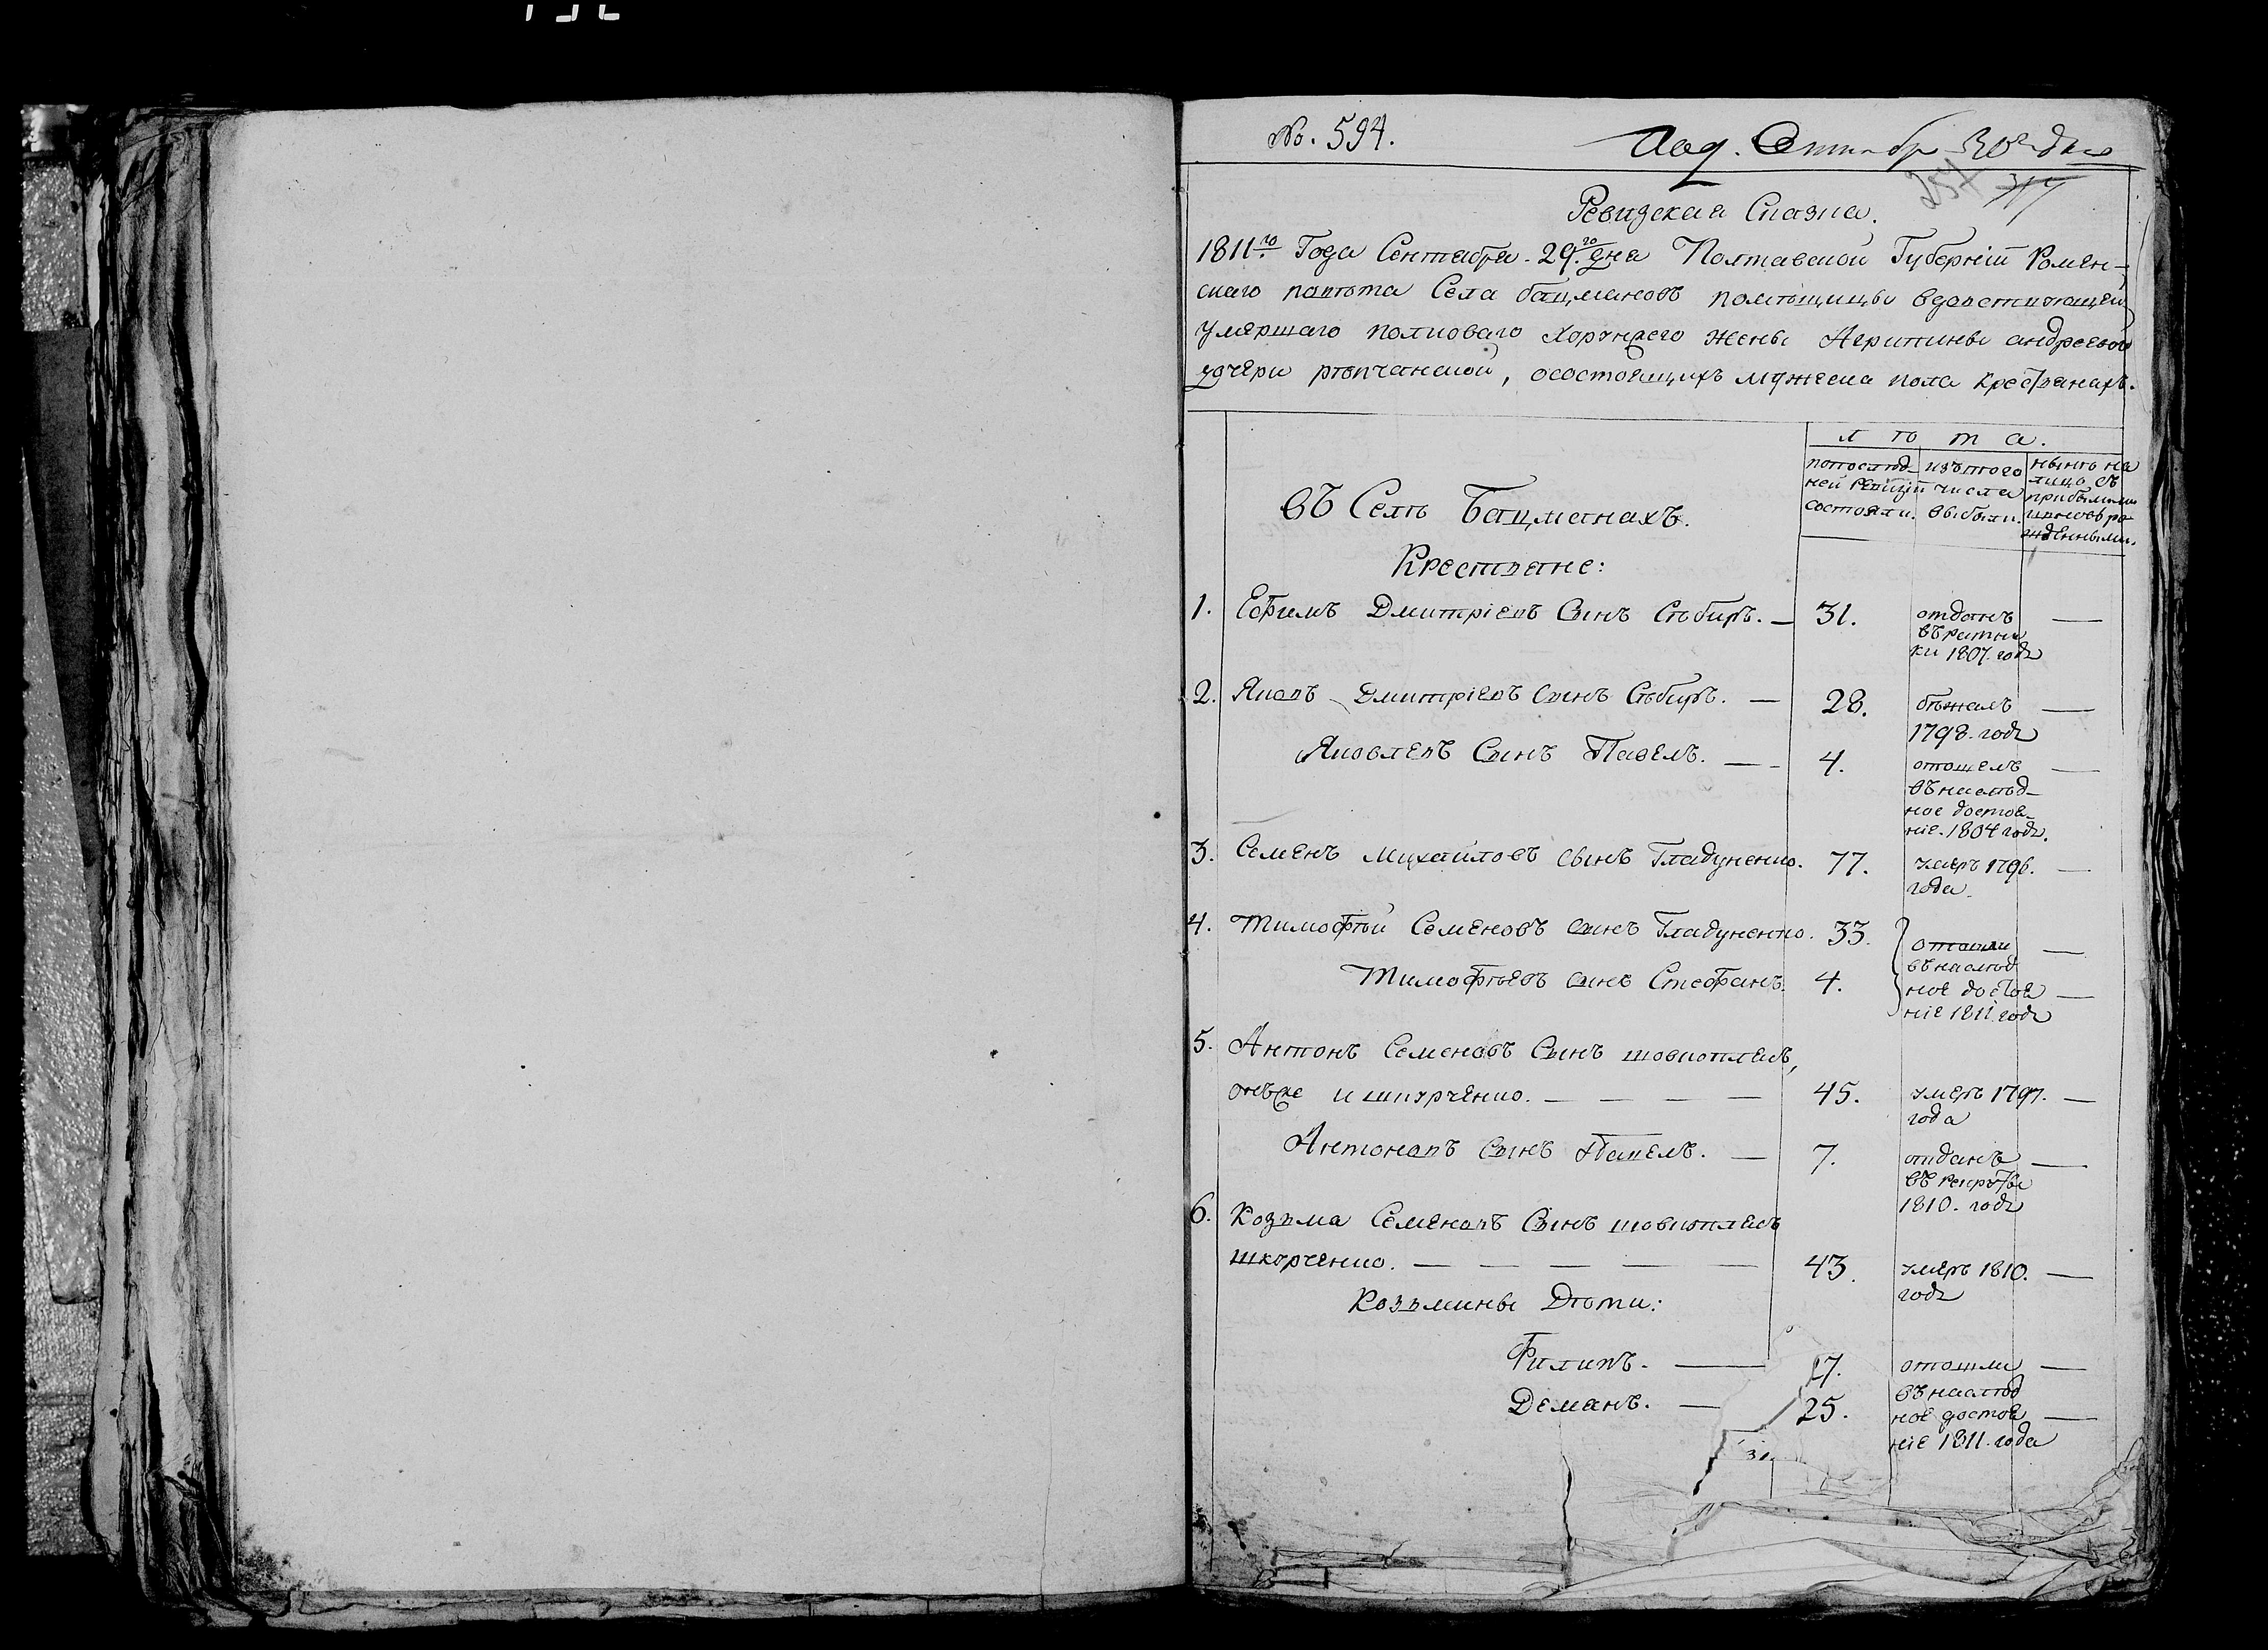 No. 594.
Под. Сентябр 30го дня
257 314
Ревизская Сказка.
1811го Года Сентября 29го дня Полтавской Губерніи Ромен-
скаго повѣта Села бацмановъ помѣщицы вдовствующей
умершаго полковаго хорунжего жены Агрипины андреевой
дочери рѣпчанской, осостоящихъ мужеска пола крестьянахъ.
лѣта.
попослѣд-
ней ревизіи
состояли.
изътого
числа
выбыли.
нынѣ на
лицо съ
прибылыми
ивновь ро-
жденными.
въ Селѣ Бацманахъ.
Крестьяне:
1. Ефимъ Дмитріевъ Сынъ Сѣбиръ. — 31. отданъ —
въ ратни
ки 1807. года
2. Яковъ Дмитріевъ сынъ Сѣбиръ. — 28. бѣжалъ —
1798. года
Яковлевъ Сынъ Павелъ. — 4. отошелъ —
въ наслѣд-
ное достоя-
ніе. 1804 года.
3. Семенъ Михайловъ сынъ Гладуненко. 77. умеръ 1796. —
года.
4. Тимофѣй Семеновъ сынъ Гладуненко. 33. отошли —
въ наслѣд
Тимофѣевъ сынъ Стефанъ. 4. ное достоя —
ніе 1811. года
5. Антонъ Семеновъ Сынъ шовкоплясъ,
онъже и шкурченко. — — — — 45. умеръ 1797. —
года
Антоновъ сынъ Павелъ. — 7. отданъ —
въ рекруты
1810. года
6. Козьма Семеновъ Сынъ шовкоплясъ
шкурченко. — — — — — 43. умеръ 1810. —
года
Козьмины Дѣти:
Филипъ. — 17. отошли —
въ наслѣд
Демянъ. — 25. ное достоя —
ніе 1811. года
31.